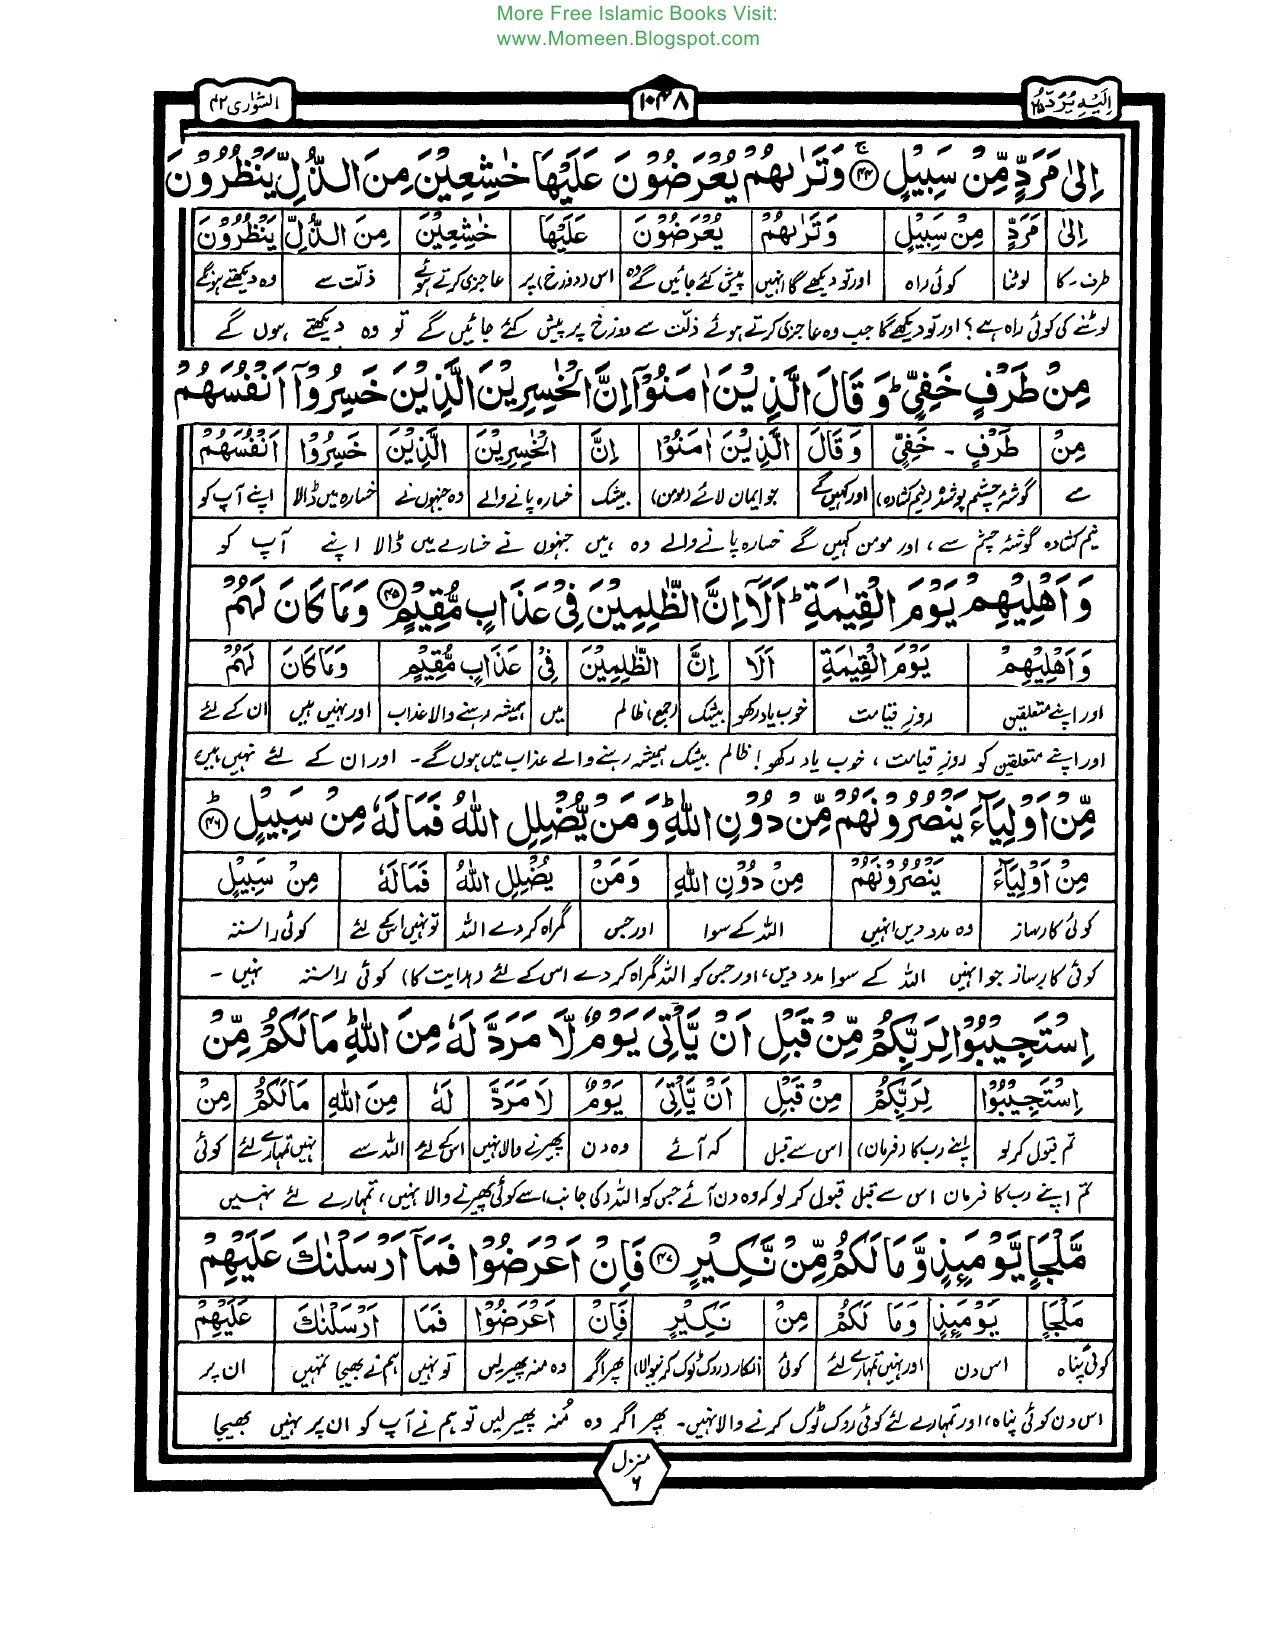 More Free Islamic Books Visit:
www.Momeen.Blogspot.com
اِلَیْهِ یُرَدُّ ۲۵
۱۰۴۸
الشورٰی ۴۲
اِلٰى مَرَدٍّ مِّنْ سَبِیْلٍ ﴿۴۴﴾ وَتَرٰىهُمْ یُعْرَضُوْنَ عَلَیْهَا خٰشِعِیْنَ مِنَ الذُّلِّ یَنْظُرُوْنَ
اِلٰى مَرَدٍّ مِنْ سَبِیْلٍ وَتَرٰىهُمْ یُعْرَضُوْنَ عَلَیْهَا خٰشِعِیْنَ مِنَ الذُّلِّ یَنْظُرُوْنَ
طرف۔کا لوٹنا کوئی راہ اور تو دیکھے گا انہیں پیش کئے جائیں گے وہ اس (دوزخ) پر عاجزی کرتے ہوئے ذلّت سے وہ دیکھتے ہونگے
لوٹنے کی کوئی راہ ہے؟ اور تو دیکھے گا جب وہ عاجزی کرتے ہوئے ذلّت سے دوزخ پر پیش کئے جائیں گے تو وہ دیکھتے ہوں گے
مِنْ طَرْفٍ خَفِیٍّ ؕ وَقَالَ الَّذِیْنَ اٰمَنُوْۤا اِنَّ الْخٰسِرِیْنَ الَّذِیْنَ خَسِرُوْۤا اَنْفُسَهُمْ
مِنْ طَرْفٍ - خَفِیٍّ وَقَالَ الَّذِیْنَ اٰمَنُوْا اِنَّ الْخٰسِرِیْنَ الَّذِیْنَ خَسِرُوْا اَنْفُسَهُمْ
سے گوشۂ چشم پوشیدہ (نیم کشادہ) اور کہیں گے جو ایمان لائے (مومن) بیشک خسارہ پانے والے وہ جنہوں نے خسارہ میں ڈالا اپنے آپ کو
نیم کشادہ گوشۂ چشم سے، اور مومن کہیں گے خسارہ پانے والے وہ ہیں جنہوں نے خسارے میں ڈالا اپنے آپ کو
وَاَهْلِیْهِمْ یَوْمَ الْقِیٰمَةِ ؕ اَلَاۤ اِنَّ الظّٰلِمِیْنَ فِیْ عَذَابٍ مُّقِیْمٍ ﴿۴۵﴾ وَمَا كَانَ لَهُمْ
وَاَهْلِیْهِمْ یَوْمَ الْقِیٰمَةِ اَلَا اِنَّ الظّٰلِمِیْنَ فِیْ عَذَابٍ مُّقِیْمٍ وَمَا كَانَ لَهُمْ
اور اپنے متعلقین روزِ قیامت خوب یاد رکھو بیشک (جمع) ظالم میں ہمیشہ رہنے والا عذاب اور نہیں ہیں ان کے لئے
اور اپنے متعلقین کو روزِ قیامت، خوب یاد رکھو! ظالم بیشک ہمیشہ رہنے والے عذاب میں ہوں گے۔ اور ان کے لئے نہیں ہیں
مِّنْ اَوْلِیَآءَ یَنْصُرُوْنَهُمْ مِّنْ دُوْنِ اللّٰهِ ؕ وَمَنْ یُّضْلِلِ اللّٰهُ فَمَا لَهٗ مِنْ سَبِیْلٍ ﴿۴۶﴾ؕ
مِنْ اَوْلِیَآءَ یَنْصُرُوْنَهُمْ مِنْ دُوْنِ اللّٰهِ وَمَنْ یُضْلِلِ اللّٰهُ فَمَا لَهٗ مِنْ سَبِیْلٍ
کوئی کارساز وہ مدد دیں انہیں اللہ کے سوا اور جس گمراہ کر دے اللہ تو نہیں اسکے لئے کوئی راستہ
کوئی کارساز جو انہیں اللہ کے سوا مدد دیں، اور جس کو اللہ گمراہ کر دے اس کے لئے (ہدایت کا) کوئی راستہ نہیں۔
اِسْتَجِیْبُوْا لِرَبِّكُمْ مِّنْ قَبْلِ اَنْ یَّاْتِیَ یَوْمٌ لَّا مَرَدَّ لَهٗ مِنَ اللّٰهِ مَا لَكُمْ مِّنْ
اِسْتَجِیْبُوْا لِرَبِّكُمْ مِنْ قَبْلِ اَنْ یَّاْتِیَ یَوْمٌ لَا مَرَدَّ لَهٗ مِنَ اللّٰهِ مَا لَكُمْ مِنْ
تم قبول کر لو اپنے رب کا (فرمان) اس سے قبل کہ آئے وہ دن پھیرنے والا نہیں اس کے لئے اللہ سے نہیں تمہارے لئے کوئی
تم اپنے رب کا فرمان اس سے قبل قبول کر لو کہ وہ دن آئے جس کو اللہ (کی جانب) سے کوئی پھیرنے والا نہیں، تمہارے لئے نہیں
مَّلْجَاٍ یَّوْمَىِٕذٍ وَّمَا لَكُمْ مِّنْ نَّكِیْرٍ ﴿۴۷﴾ فَاِنْ اَعْرَضُوْا فَمَاۤ اَرْسَلْنٰكَ عَلَیْهِمْ
مَلْجَاٍ یَوْمَىِٕذٍ وَمَا لَكُمْ مِنْ نَكِیْرٍ فَاِنْ اَعْرَضُوْا فَمَا اَرْسَلْنٰكَ عَلَیْهِمْ
کوئی پناہ اس دن اور نہیں تمہارے لئے کوئی انکار (روک ٹوک کرنیوالا) پھر اگر وہ منہ پھیر لیں تو نہیں ہم نے بھیجا تمہیں ان پر
اس دن کوئی پناہ، اور تمہارے لئے کوئی روک ٹوک کرنے والا نہیں۔ پھر اگر وہ مُنہ پھیر لیں تو ہم نے آپ کو ان پر نہیں بھیجا
منزل ۶